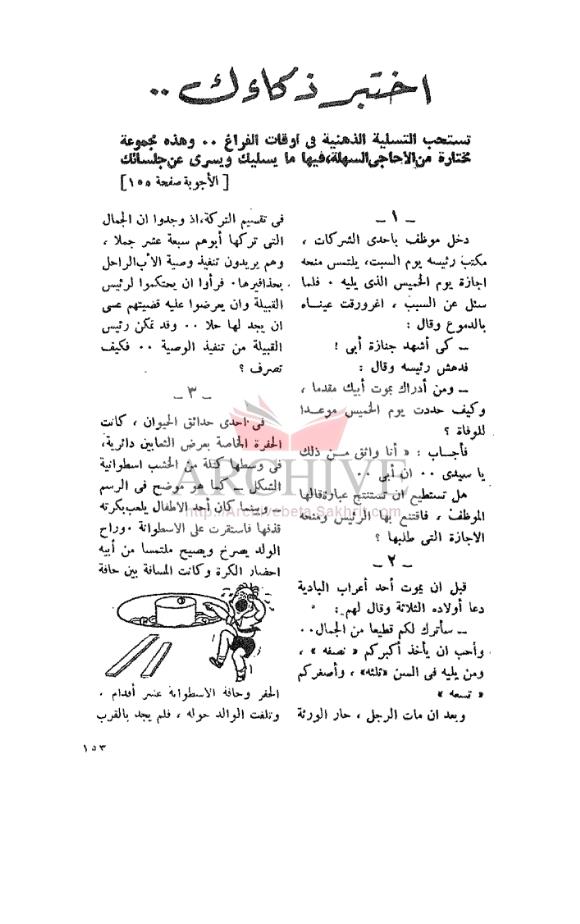 اختبر ذكاءك ..
تستحب التسلية الذهنية فى أوقات الفراغ .. وهذه مجموعة
مختارة من الأحاجى السهلة، فيها ما يسليك ويسرى عن جلسائك
[ الأجوبة صفحة ١٥٥ ]
ــ ١ ــ
دخل موظف باحدى الشركات ،
مكتب رئيسه يوم السبت، يلتمس منحه
اجازة يوم الخميس الذى يليه . فلما
سئل عن السبب ، اغرورقت عيناه
بالدموع وقال :
ــ كى أشهد جنازة أبى !
فدهش رئيسه وقال :
ــ ومن أدراك بموت أبيك مقدما ،
وكيف حددت يوم الخميس موعدا
للوفاة ؟
فأجاب : « أنا واثق من ذلك
يا سيدى .. ان أبى ..
هل تستطيع ان تستنتج عبارة قالها
الموظف ، فاقتنع بها الرئيس ومنحه
الاجازة التى طلبها ؟
ــ ٢ ــ
قبل ان يموت أحد أعراب البادية
دعا أولاده الثلاثة وقال لهم :
ــ سأترك لكم قطيعا من الجمال..
وأحب ان يأخذ أكبركم « نصفه » ،
ومن يليه فى السن «ثلثه» ، وأصغركم
« تسعه »
وبعد ان مات الرجل ، حار الورثة
فى تقسيم التركة،اذ وجدوا ان الجمال
التى تركها أبوهم سبعة عشر جملا ،
وهم يريدون تنفيذ وصية الأب الراحل
بحذافيرها. فرأوا ان يحتكموا لرئيس
القبيلة وان يعرضوا عليه قضيتهم عسى
ان يجد لها حلا .. وقد تمكن رئيس
القبيلة من تنفيذ الوصية .. فكيف
تصرف ؟
ــ ٣ ــ
فى احدى حدائق الحيوان ، كانت
الحفرة الخاصة بعرض الثعابين دائرية،
فى وسطها كتلة من الخشب اسطوانية
الشكل ــ كما هو موضح فى الرسم
ــ وبينما كان أحد الاطفال يلعب بكرته
قذفها فاستقرت على الاسطوانة .وراح
الولد يصرخ ويصيح ملتمسا من أبيه
احضار الكرة وكانت المسافة بين حافة
الحفر وحافة الاسطوانة عشر أقدام .
وتلفت الوالد حوله ، فلم يجد بالقرب
١٥٣
ARCHIVE
http://Archivebeta.Sakhrit.com